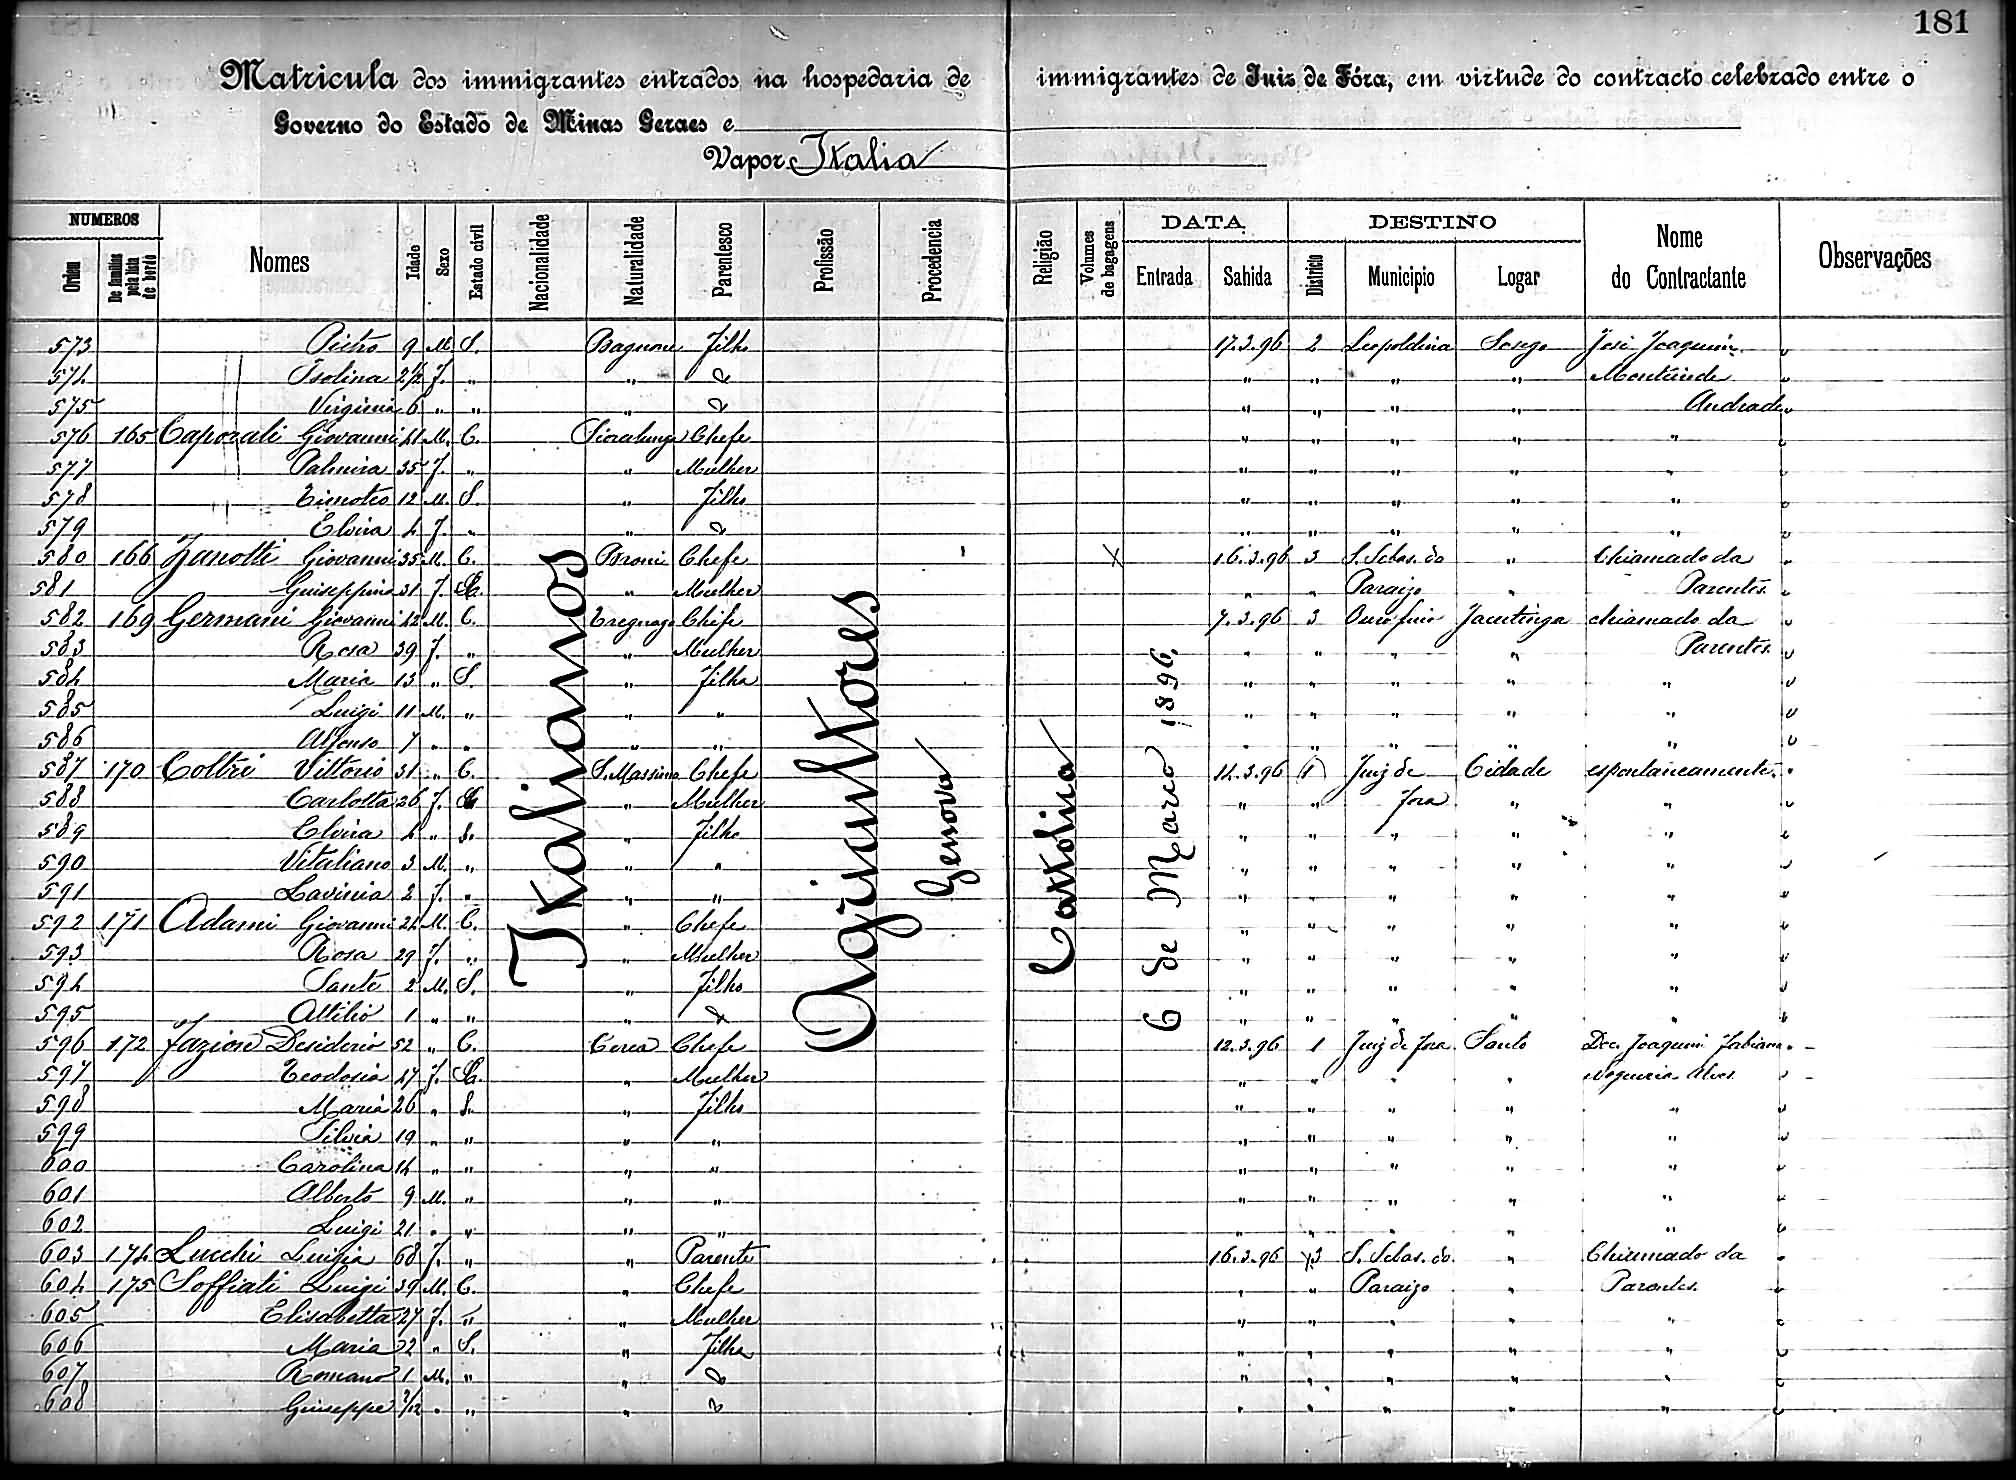 181
Matricula dos immigrantes entrados na hospedaria de immigrantes de Juiz de Fóra, em virtude do contracto celebrado entre o
Governo do Estado de Minas Geraes e
Vapor Italia
NUMEROS DATA DESTINO
Ordem De familias pela lista de bordo Nomes Idade Sexo Estado civil Nacionalidade Naturalidade Parentesco Profissão Procedencia Religião Volumes de bagagens Entrada Sahida Districto Municipio Logar Nome do Contractante Observações
Italianos
Agricultores
Genova
Catholica
6 de Março 1896
573 Pietro 9 M. S. Bagnone Filho 17.3.96 2 Leopoldina Socego José Joaquim
574 Isolina 2½ F. " " " " " " "
575 Virginia 6 " " " " " " " Andrade
576 165 Caporali Giovanni 41 M. C. Chefe " " " " "
577 Palmira 35 F. " " Mulher " " " " "
578 Timoteo 12 M. S. " Filho " " " " "
579 Elvira 4 F. " " " " " " "
580 166 Zanotti Giovanni 35 M. C. Broni Chefe 16.3.96 3 S. Sebas. do " Chiamado da
581 Guiseppina 31 F. Ca. " Mulher " " Paraizo " Parentes.
582 169 Germani Giovanni 42 M. C. Tregnago Chefe 7.3.96 3 Ouro fino Jacutinga chiamado da
583 Rosa 39 F. " " Mulher " " " " Parentes.
584 Maria 13 " S. " Filha " " " " "
585 Luigi 11 M. " " " " " " " "
586 Alfonso 7 " " " " " " " " "
587 170 Coltri Vittorio 31 " C. S. Massimo Chefe 14.3.96 1 Juiz de Cidade espontaneamente.
588 Carlotta 26 F. " Mulher " " Fora " "
589 Elvira 4 " S. " Filho " " " " "
590 Vitaliano 3 M. " " " " " " " "
591 Lavinia 2 F. " " " " " " " "
592 171 Adami Giovanni 24 M. C. " Chefe " " " " "
593 Rosa 29 F. " " Mulher " " " " "
594 Sante 2 M. S. " Filho " " " " "
595 Attilio 1 " " " " " " " "
596 172 Fazion Desiderio 52 " C. Cerea Chefe 12.3.96 1 Juiz de Fora Santo Doc. Joaquim Fabiano
597 Teodosia 47 F. Ca. " Mulher " " " " Nogueira Alves
598 Maria 26 " S. " Filho " " " " "
599 Silvia 19 " " " " " " " " "
600 Carolina 14 " " " " " " " " "
601 Alberto 9 M. " " " " " " " "
602 Luigi 21 " " " " " " " " "
603 174 Lucchi Luigia 68 F. " " Parente 16.3.96 3 S. Sebas. do. " Chiamado da
604 175 Soffiati Luigi 39 M. C. " Chefe " " Paraizo " Parentes.
605 Elisabetta 27 F. " " Mulher " " " " "
606 Maria 22 " S. " Filha " " " " "
607 Romano 1 M. " " " " " " "
608 Guiseppe " " " " " " " "